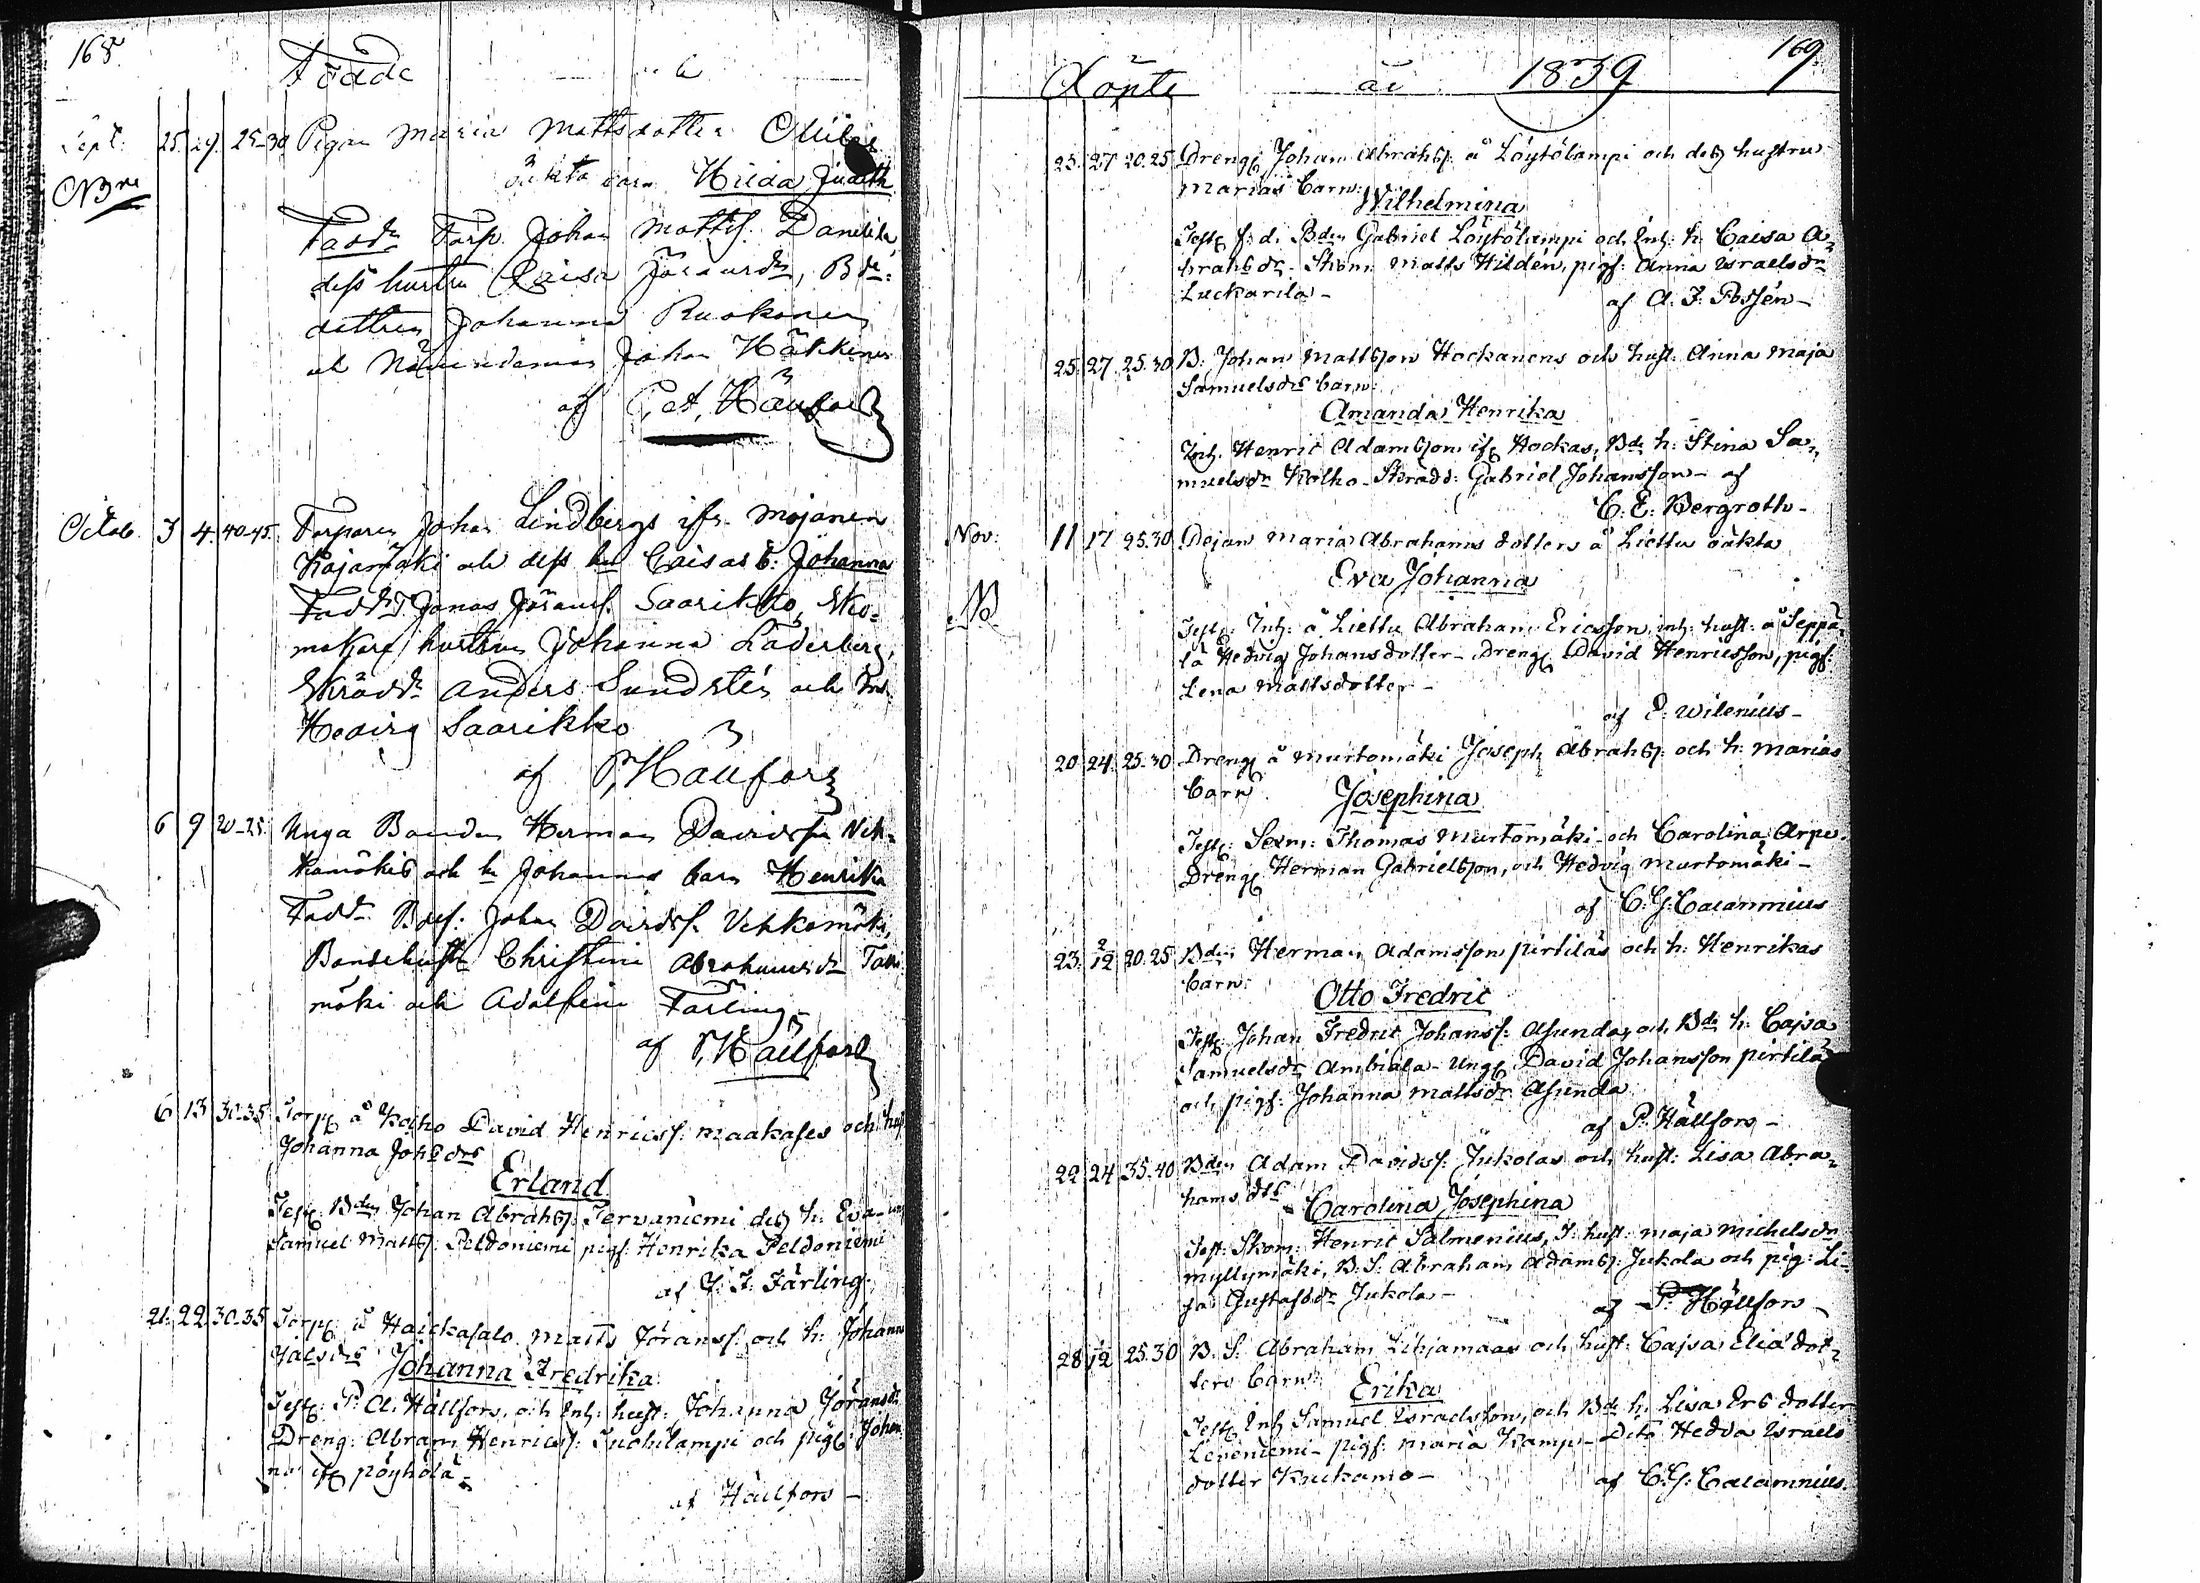 168.
Födde
Sept. 25. 29. 25-30 Pigan Maria Mattsdotter
oäkta barn Hilda Judith
NBne
Fadd. Torp. Johan Mattss. Danskila
dess hustru Caisa Göransdr, Bde:
dottren Johanna Ruokonen
och Nämndeman Johan Häkkinen
af Pet. Hällfors
Octob. 3 4. 40-45. Torparen Johan Lindbergs ifr. Mojanen
Kajamäki och dess hu Caisas b. Johanna
Fadd. T. Jonas Göranss. Saarikko, Sko-
makare hustrun Johanna Läderberg,
Skrädd. Anders Sundstén och
Hedvig Saarikko
af P. Hällfors
6 9 20-25. Unga Bonden Herman Davidss. Veh-
kamäkis och h. Johannas barn Henrika
Fadd. Bdes. Johan Davidss. Vehkamäki,
Bondehust. Christina Abrahamsdr
mäki och Adolfina Färling,
af P. Hällfors
6 13 30-35. Torp. å Kolho David Henricss. Maakases och hust.
Johanna Johsdrs
Erland
Test: Bden Johan Abrahss. Tervaniemi dess h. Eva
Samuel Mattss. Peldoniemi pigs. Henrika Peldoniemi
af G. F. Färling.
21. 22. 30-35 Torp. å Haickasalo Matts Göranss. och h. Johanna
Johanna Fredrika
Test: P. A. Hällfors, och Inh: hust: Johanna Göransdr
Dreng: Abram Henricss: Suohilampi och pigs: Johan
na ifr pöyhölä
af Hällfors -
169
Döpte år 1839
25. 27 20.25 Dreng. Johan Abrahss. å Löytölampi och dess hustru
Marias barn: Wilhelmina
Test. f.d. Bden Gabriel Löytölampi och Inh: h. Caisa A-
brahsdr. Skom. Matts Hildén, pigs: Anna Israelsdr
Luckarila - af A. F. Possén -
25. 27. 25.30 B. Johan Mattsson Hockanens och hust. Anna Maja
Samuelsdrs barn:
Amanda Henrika
Inh. Henric Adamsson ifr Hockas, Bde h. Stina Sa-
muelsdr Kolho - Skrädd: Gabriel Johansson - af
C. E. Bergroth -
Nov. 11 17 25.30 Dejan Maria Abrahams dotters å Liettu oäkta
Eva Johanna
NB
Test: Inh: å Liettu Abraham Ericsson, inh: hust: å Seppä-
lä Hedvig Johansdotter - Dreng David Henricsson, pigs:
Lena Mattsdotter -
af E. Wilenius -
20 24. 25-30 Dreng å Murtomäki Joseph Abrahss. och h: Marias
barn Josephina
Test: Sexm: Thomas Murtomäki - och Carolina Arpe.
Dreng Herman Gabrielsson, och Hedvig Murtomäki -
af C. G. Calamnius
23. 2/12 20.25 Bden Herman Adamsson pirtiläs och h. Henrikas
barn: Otto Fredric
Test: Johan Fredric Johanss: Asunda, och Bde h: Cajsa
Samuelsdr Ambiala - Ung. David Johansson pirtilä
och pigs: Johanna Mattsdr Asunda
af P. Hällfors -
22 24 35.40 Bden Adam Davidss. Jukolas och hust: Lisa Abra-
hams dts Carolina Josephina
Test: Skom: Henric Salmenius, I. hust: Maja Michelsdr
Myllymäki, B. S. Abraham Adamss. Jukola och pig: Li-
sa Gustafsdr Jukola - af P. Hällfors -
28 /12 25.30 B. S. Abraham och hust: Cajsa Elia dot-
ters barn: Erika
Test: Inh Samuel Israelsson, och Bde h. Lisa Ers dotter
Leveniemi - pigs: Maria Kamp - Dito Hedda Israels
dotter Kuckamo - af C. G. Calamnius.